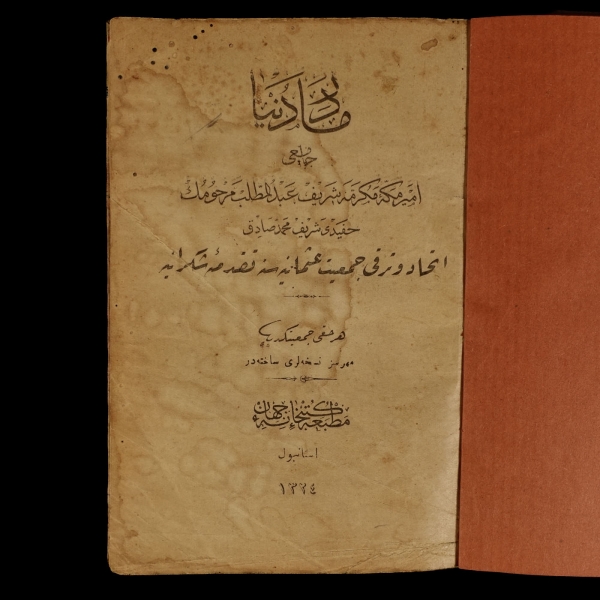 مادر دنیا
جامعی
امیر مكۀ مكرمه شریف عبدالمطلب مرحومك
حفیدی شریف محمد صادق
اتحاد و ترقی جمعیت عثمانیه سنه تقدمۀ شكرانه
هر حقی جمعیتكدر
مهرسز نسخه لری ساخته در
مطبعۀ كتبخانۀ جهان
استانبول
١٣٢٤